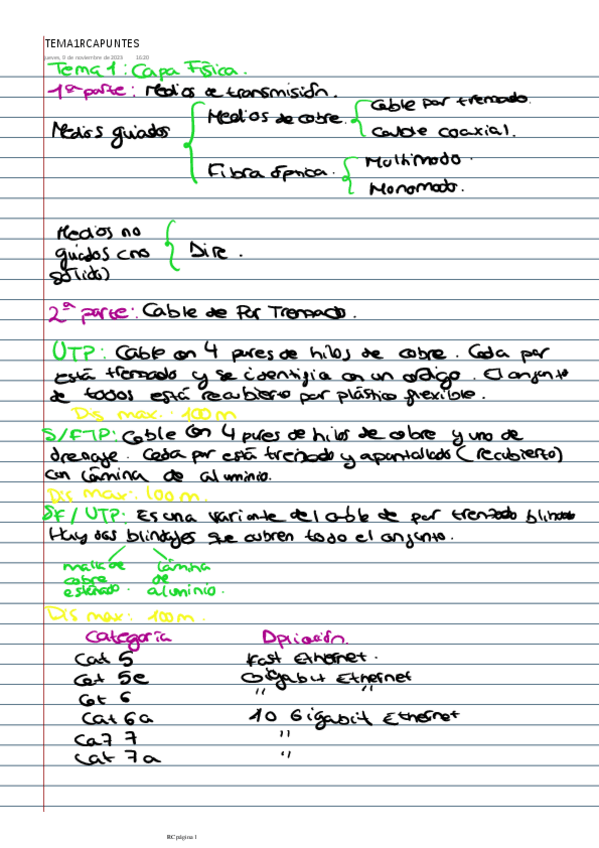 TEMA1RCAPUNTES
jueves, 9 de noviembre de 2023 16:20
Tema 1: Capa Física.
1ª parte: Medios de transmisión.
Medios guiados
Medios de cobre.
Cable par trenzado.
Cable coaxial.
Fibra óptica.
Multimodo.
Monomodo.
Medios no
guiados (no
sólido)
Aire.
2ª parte: Cable de Par Trenzado.
UTP: Cable con 4 pares de hilos de cobre. Cada par
está trenzado y se identifica con un código. El conjunto
de todos está recubierto por plástico flexible.
Dis max.: 100m
S/FTP: Cable con 4 pares de hilos de cobre y uno de
drenaje. Cada par está trenzado y apantallado (recubierto)
con lámina de aluminio.
Dis max: 100m.
SF/UTP: Es una variante del cable de par trenzado blindado
Hay dos blindajes que cubren todo el conjunto.
malla de cobre estañado.
lámina de aluminio.
Dis max: 100m.
Categoría Aplicación.
Cat 5 Fast Ethernet.
Cat 5e Gigabit Ethernet
Cat 6 " "
Cat 6a 10 Gigabit Ethernet
Ca7 7 "
Cat 7a "
RC página 1